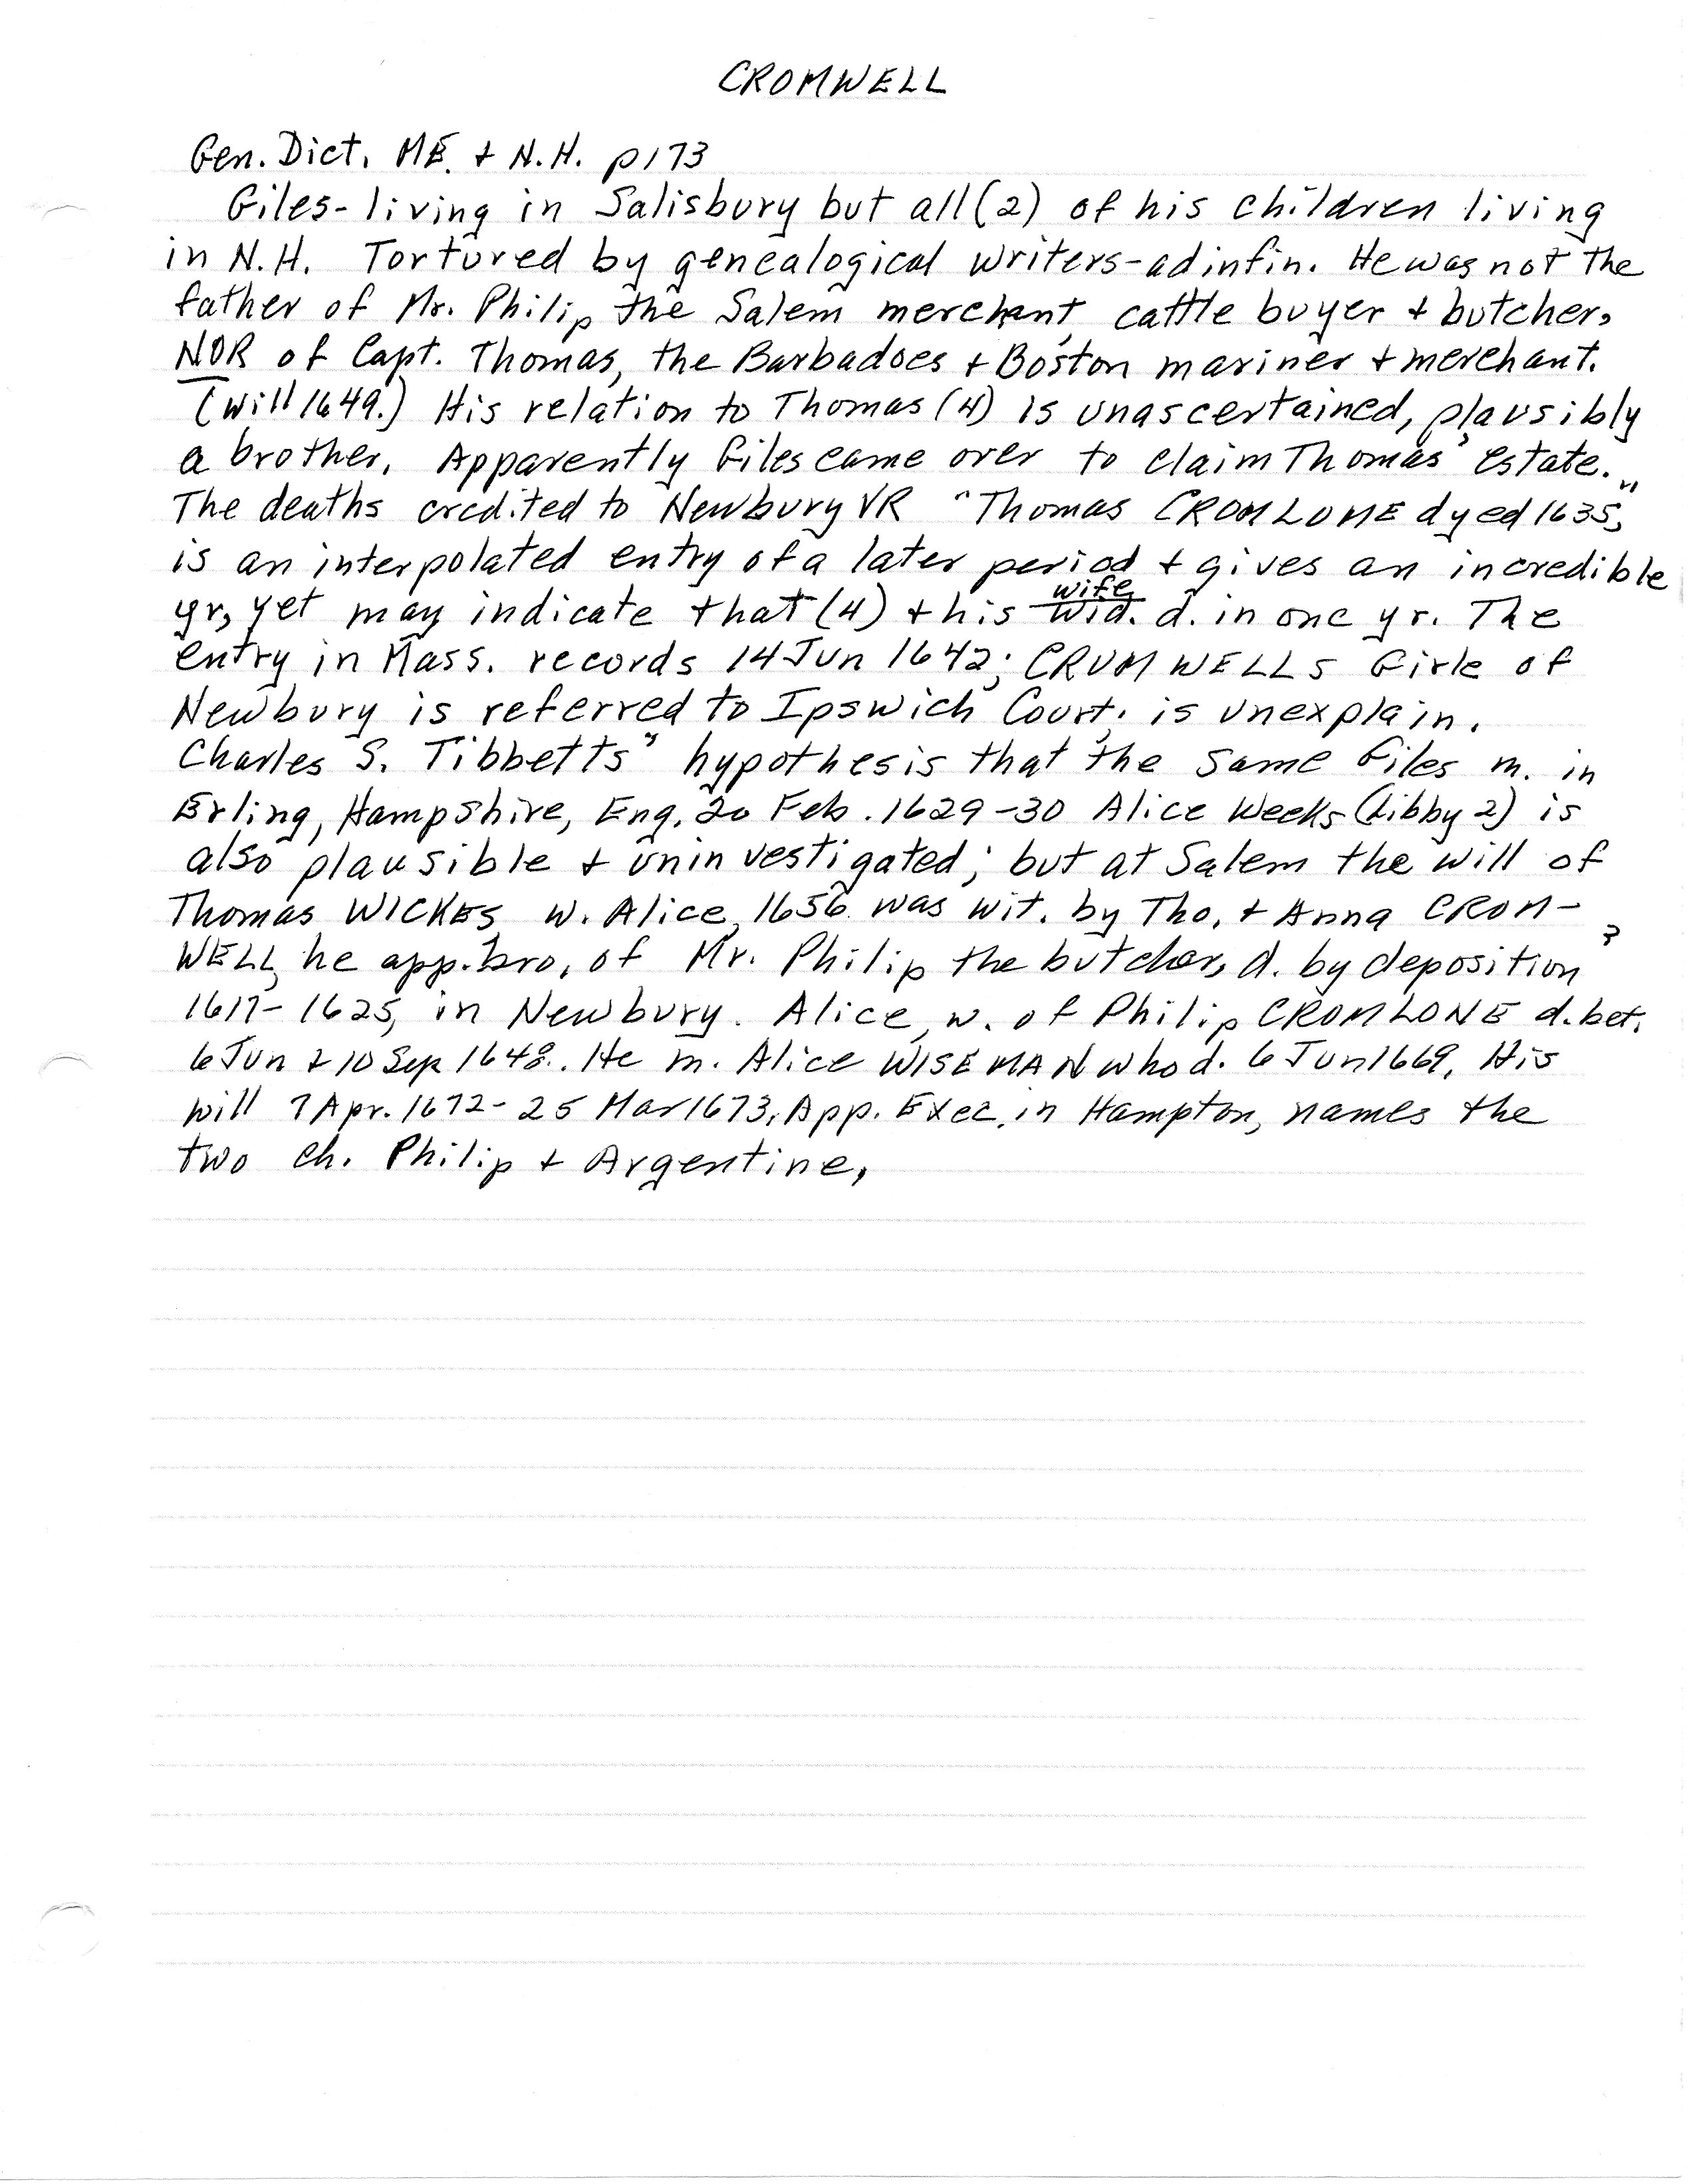 CROMWELL
Gen. Dict. ME. + N.H. p173
Giles - living in Salisbury but all (2) of his children living
in N.H. Tortured by genealogical writers - adinfin. He was not the
father of Mr. Philip the Salem merchant, cattle buyer + butcher,
NOR of Capt. Thomas, the Barbadoes + Boston mariner + merchant.
(Will 1649.) His relation to Thomas (4) is unascertained, plausibly
a brother. Apparently Giles came over to claim Thomas' estate.
The deaths credited to Newbury VR "Thomas CROMLOME dyed 1635,"
is an interpolated entry of a later period + gives an incredible
yr, yet may indicate that (4) + his wife wid. d. in one yr. The
entry in Mass. records 14 Jun 1642; CRUMWELLS Girle of
Newbury is referred to Ipswich Court, is unexplain.
Charles S. Tibbetts' hypothesis that the same Giles m. in
Erling, Hampshire, Eng. 20 Feb. 1629-30 Alice Weeks (Libby 2) is
also plausible + uninvestigated; but at Salem the will of
Thomas WICKES, w. Alice, 1656 was wit. by Tho. + Anna CROM-
WELL, he app. bro. of Mr. Philip the butcher, d. by deposition ?
1617-1625, in Newbury. Alice, w. of Philip CROMLONE d. bet.
6 Jun + 10 Sep 1648. He m. Alice WISEMAN who d. 6 Jun 1669. His
will 7 Apr. 1672 - 25 Mar 1673, App. Exec. in Hampton, names the
two ch. Philip + Argentine,